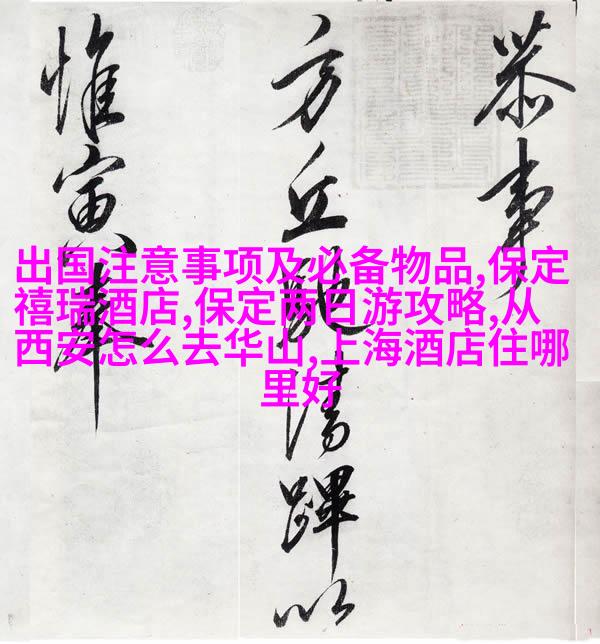 出国注意事项及必备物品,保定
禧瑞酒店,保定两日游攻略,从
西安怎么去华山,上海酒店住哪
里好
恭事
方丘清蹕以
惟寅奉